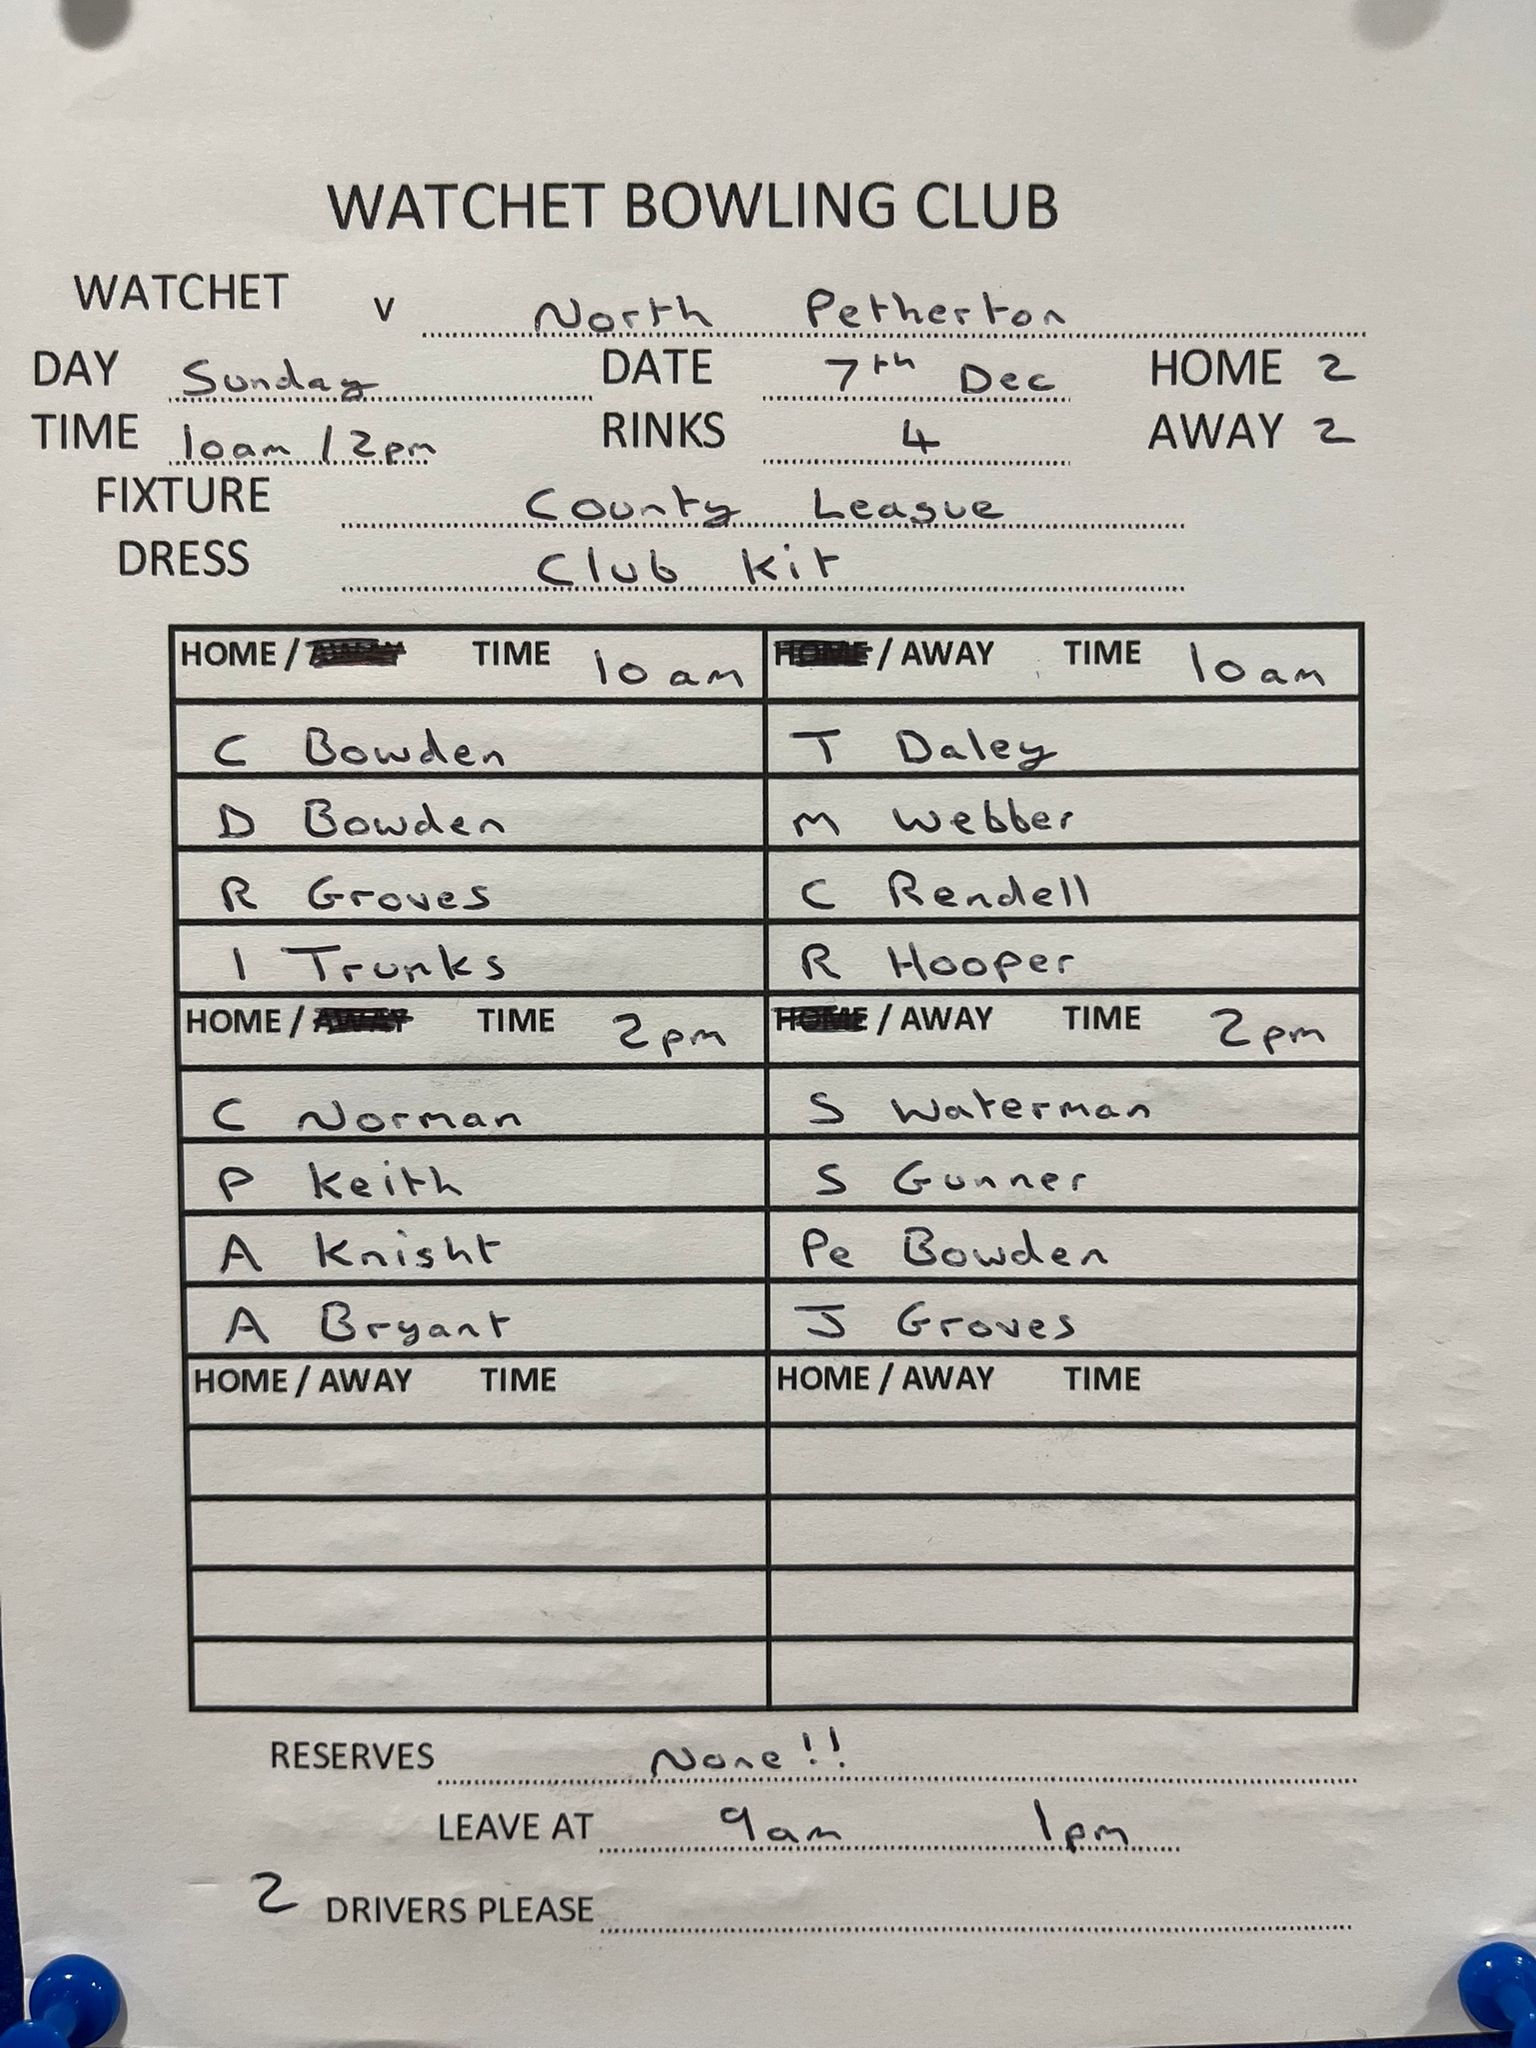 WATCHET BOWLING CLUB
WATCHET v North Petherton
DAY Sunday DATE 7th Dec HOME 2
TIME 10am / 2pm RINKS 4 AWAY 2
FIXTURE County League
DRESS Club Kit
HOME / AWAY TIME 10am HOME / AWAY TIME 10am
C Bowden T Daley
D Bowden M Webber
R Groves C Rendell
I Trunks R Hooper
HOME / AWAY TIME 2pm HOME / AWAY TIME 2pm
C Norman S Waterman
P Keith S Gunner
A Knight Pe Bowden
A Bryant J Groves
HOME / AWAY TIME HOME / AWAY TIME
RESERVES None!!
LEAVE AT 9am 1pm
2 DRIVERS PLEASE